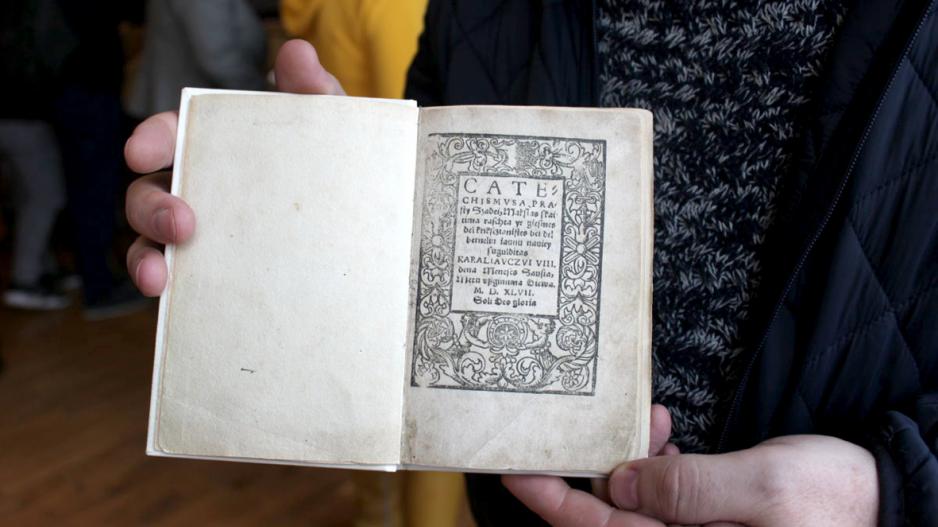 CATE-
CHISMVSA PRA-
sty Szadei, Makslas skai-
tima raschta yr giesmes
del kriksczianistes bei del
berneliu iaunu nauiey
sugulditas
KARALIAVCZVI VIII.
dena Meneses Sausia,
Metu vßgimima Diewa.
M. D. XLVII.
Soli Deo gloria